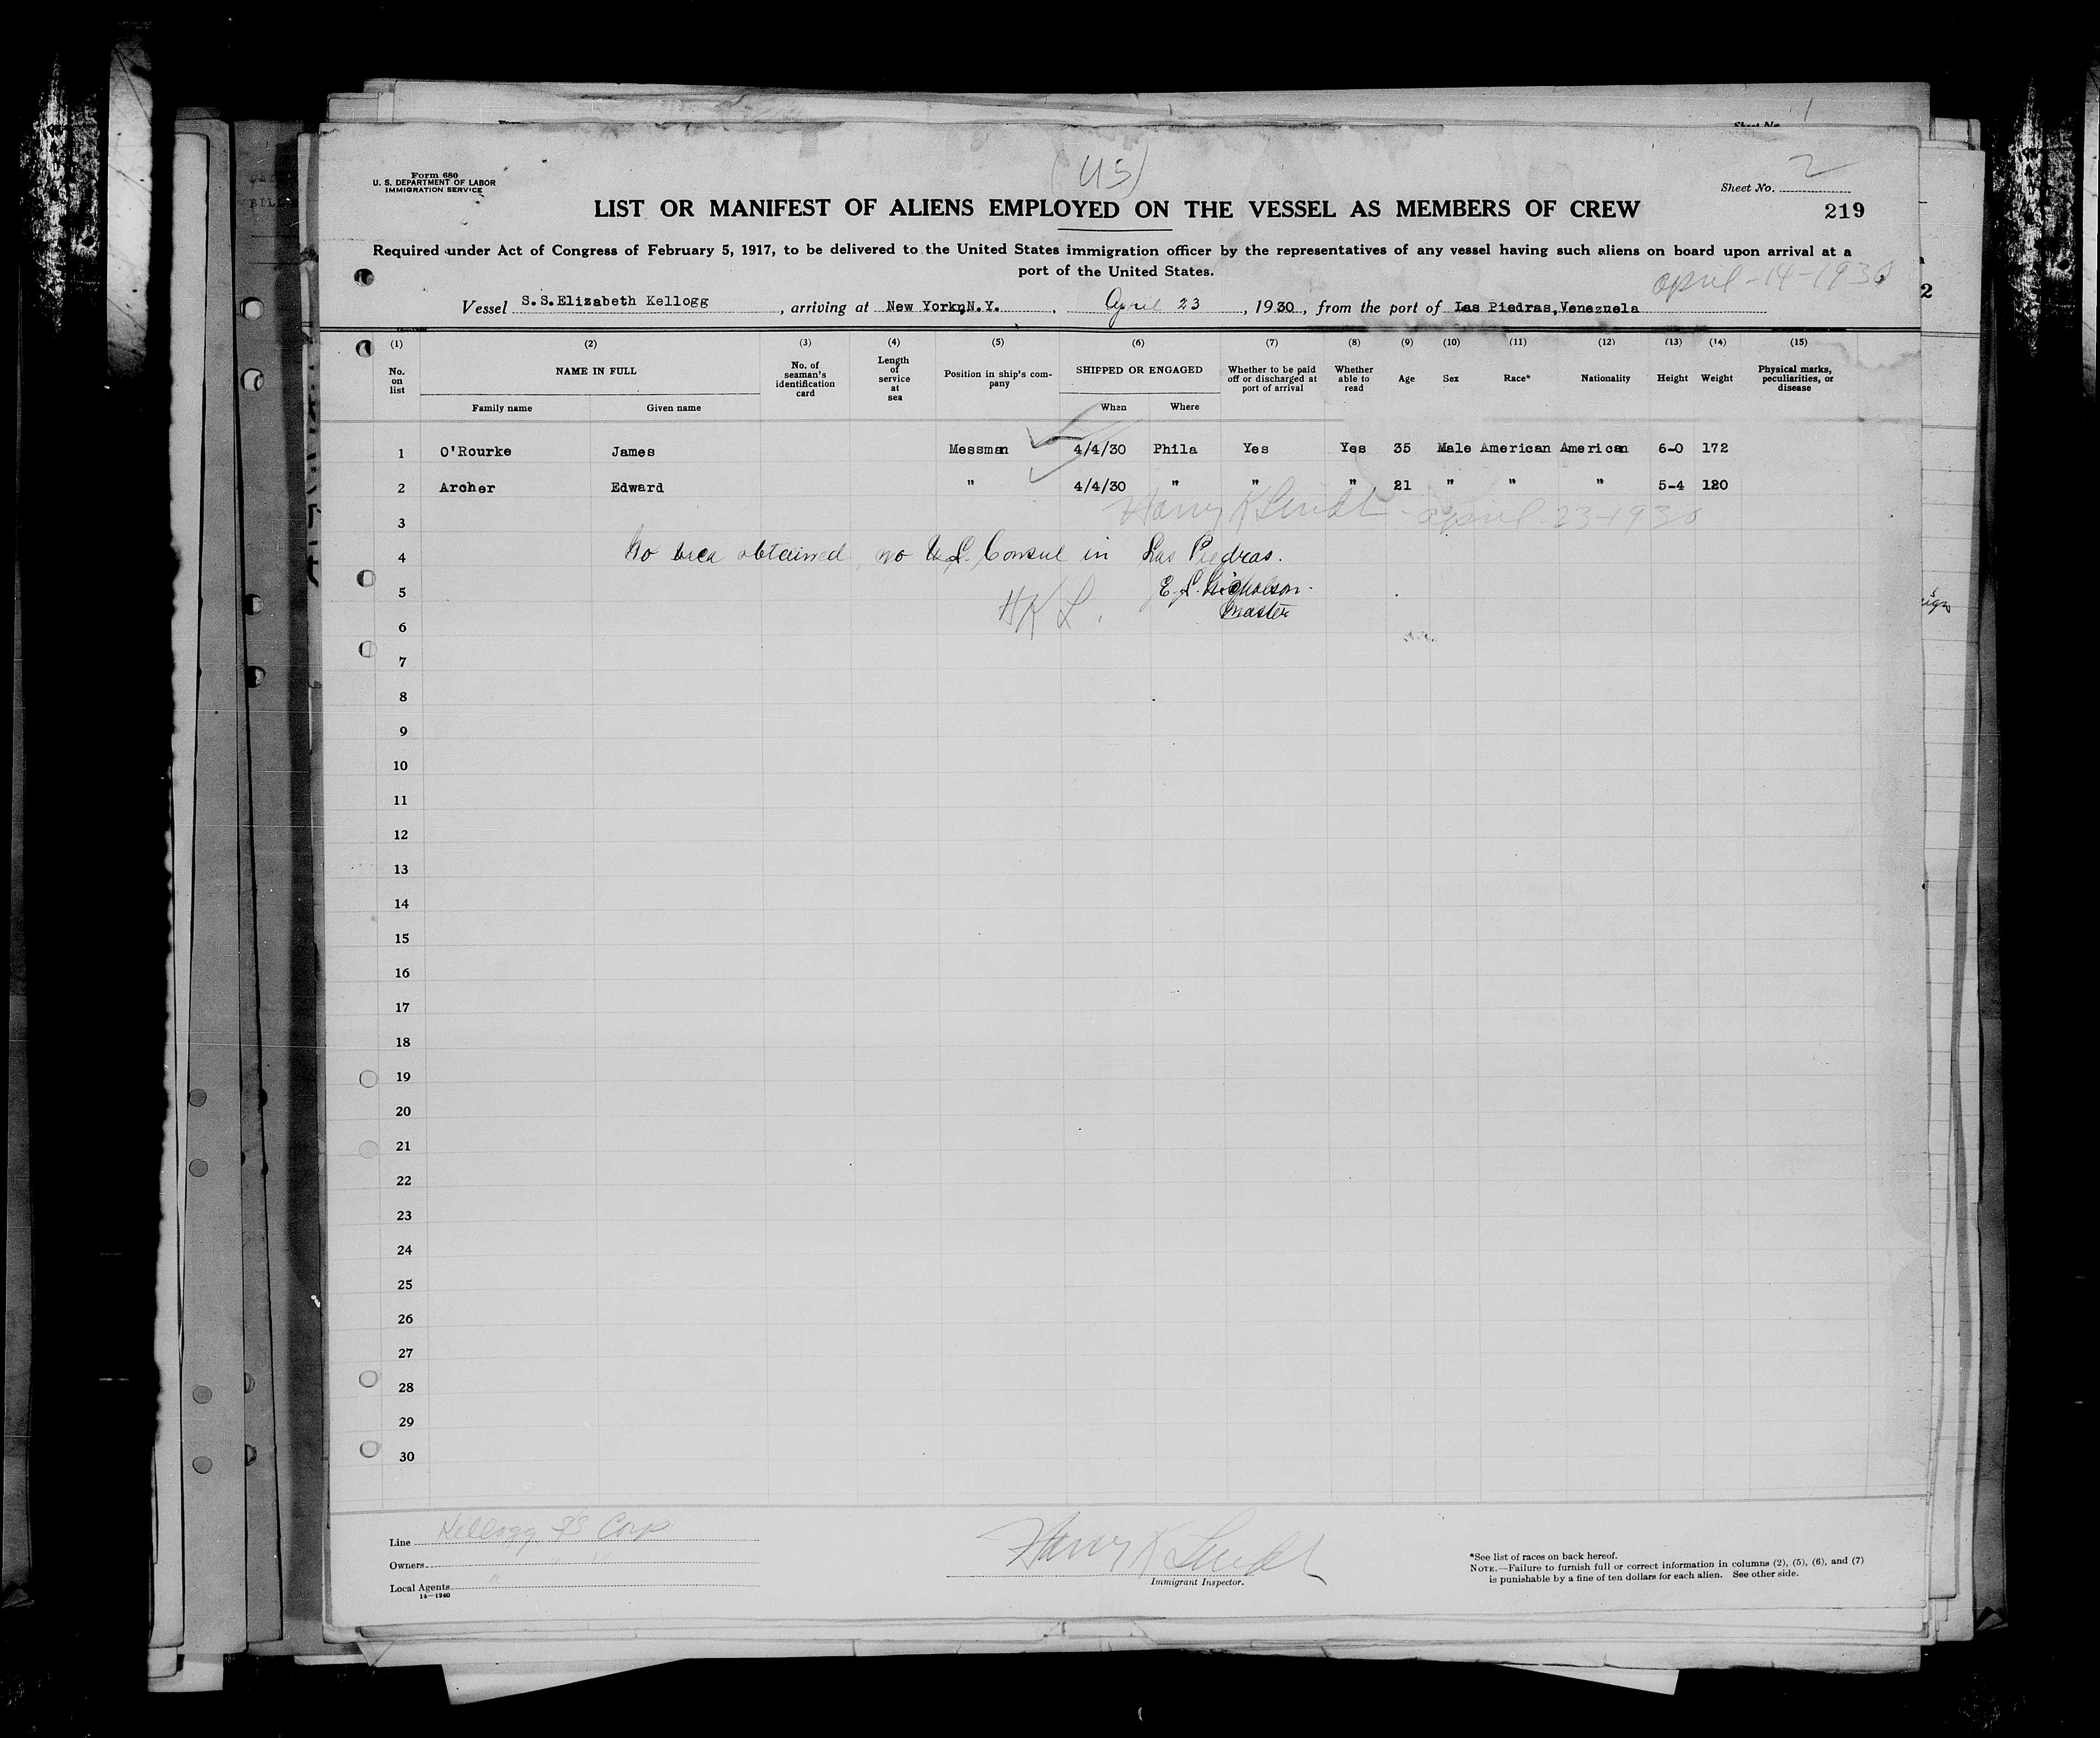 Sheet No. 1
(US)
2
Form 680
U. S. DEPARTMENT OF LABOR
IMMIGRATION SERVICE
Sheet No.
LIST OR MANIFEST OF ALIENS EMPLOYED ON THE VESSEL AS MEMBERS OF CREW
219
Required under Act of Congress of February 5, 1917, to be delivered to the United States immigration officer by the representatives of any vessel having such aliens on board upon arrival at a
port of the United States.
april-14-1930
Vessel S.S.Elizabeth Kellogg, arriving at New York,N.Y., April 23, 1930, from the port of Las Piedras,Venezuela
2
(1) (2) (3) (4) (5) (6) (7) (8) (9) (10) (11) (12) (13) (14) (15)
No. on list NAME IN FULL No. of seaman's identification card Length of service at sea Position in ship's company SHIPPED OR ENGAGED Whether to be paid off or discharged at port of arrival Whether able to read Age Sex Race* Nationality Height Weight Physical marks, peculiarities, or disease
Family name Given name When Where
1 O'Rourke James Messman 4/4/30 Phila Yes Yes 35 Male American American 6-0 172
2 Archer Edward " 4/4/30 " " " 21 " " " 5-4 120
Harry K Lindt - april-23-1930
3
4 No visa obtained, no U.S. Consul in Las Piedras.
5 E. S. Nicholson.
HKL. Master
6
7
8
9
10
11
12
13
14
15
16
17
18
19
20
21
22
23
24
25
26
27
28
29
30
Line Kellogg SS Corp
Owners " "
Local Agents "
14-1240
Harry K Lindt
Immigrant Inspector.
*See list of races on back hereof.
NOTE.—Failure to furnish full or correct information in columns (2), (5), (6), and (7)
is punishable by a fine of ten dollars for each alien. See other side.